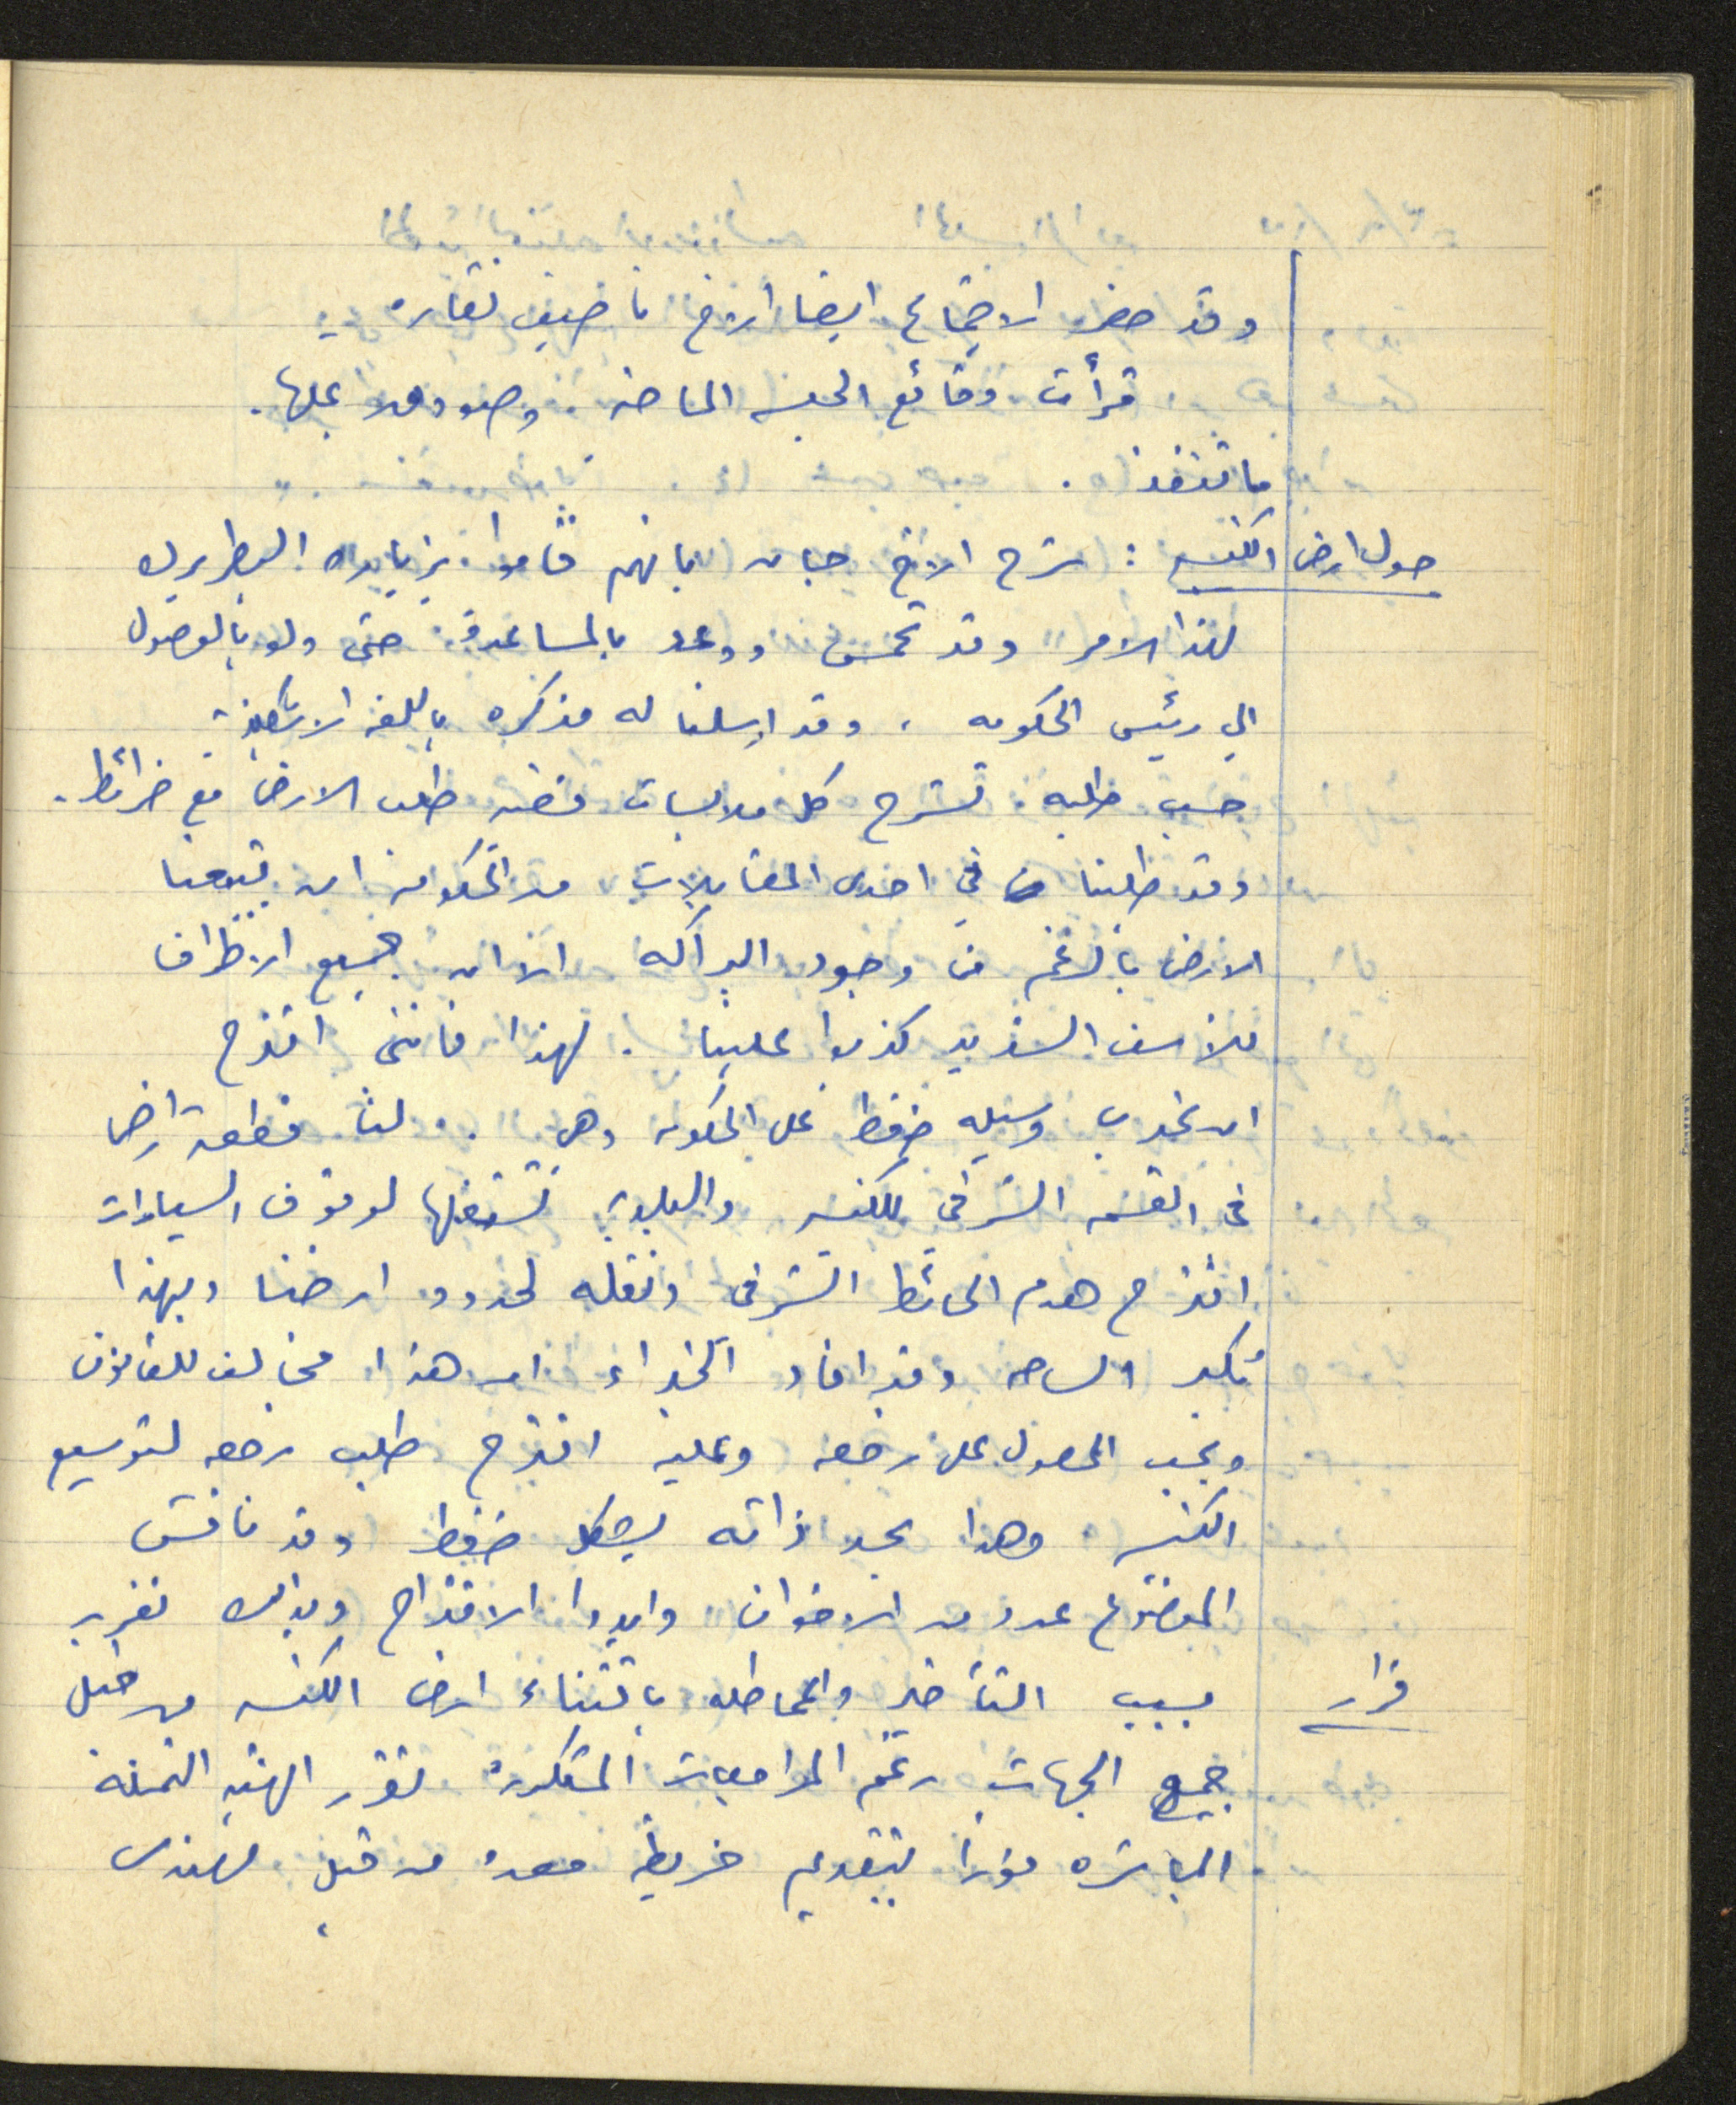 وقد حضر الاجتماع ايضا الاخ ناصيف نقاره
قرأت وقائع الجلسه الماضيه وصودق عليها.
ما تنفذ .
حول ارض الكنيسه : شرح الاخ جبان بانهم قاموا بزياره البطريرك
لهذا الامر وقد تحمس ووعد بالمساعدة حتى ولو بالوصول
الي رئيس الحكومه ، وقد ارسلنا له مذكره باللغه الانكليزية
حسب طلبه تشرح كل ملابسات قضيه طلب الارض مع خرائط.
وقد طلبنا في احدى المقابلات من الحكومه ان تبيعنا
الارض بالرغم من وجود البراكه الا ان جميع الاطراف
للاسف الشديد كذبوا علينا . لهذا فانني اقترح
ان نجرب وسيله ضغط على الحكومه وهي .. لنا قطعة ارض
في القسم الشرقي للكنيسه والبلدية تستعملها لوقوف السيارات
اقترح هدم الحائط الشرقي ونقله لحدود ارضنا وبهذا
تكبر الساحه وقد افاد الخبراء ان هذا مخالف للقانون
ويجب الحصول على رخصه وعليه اقترح طلب رخصه لتوسيع
الكنيسه وهذا بحد ذاته يشكل ضغط وقد ناقش
الموضوع عدد من الاخوان وايدوا الاقتراح وبذلك تقرير
قرار بسبب التأخير والمماطله باقتناء ارض الكنيسه من قبل
جميع الجهات رغم المراجعات المتكررة تقرر الهيئه التمثيلية
المباشره فورا بتقديم خريطه معدة من قبل مهندس